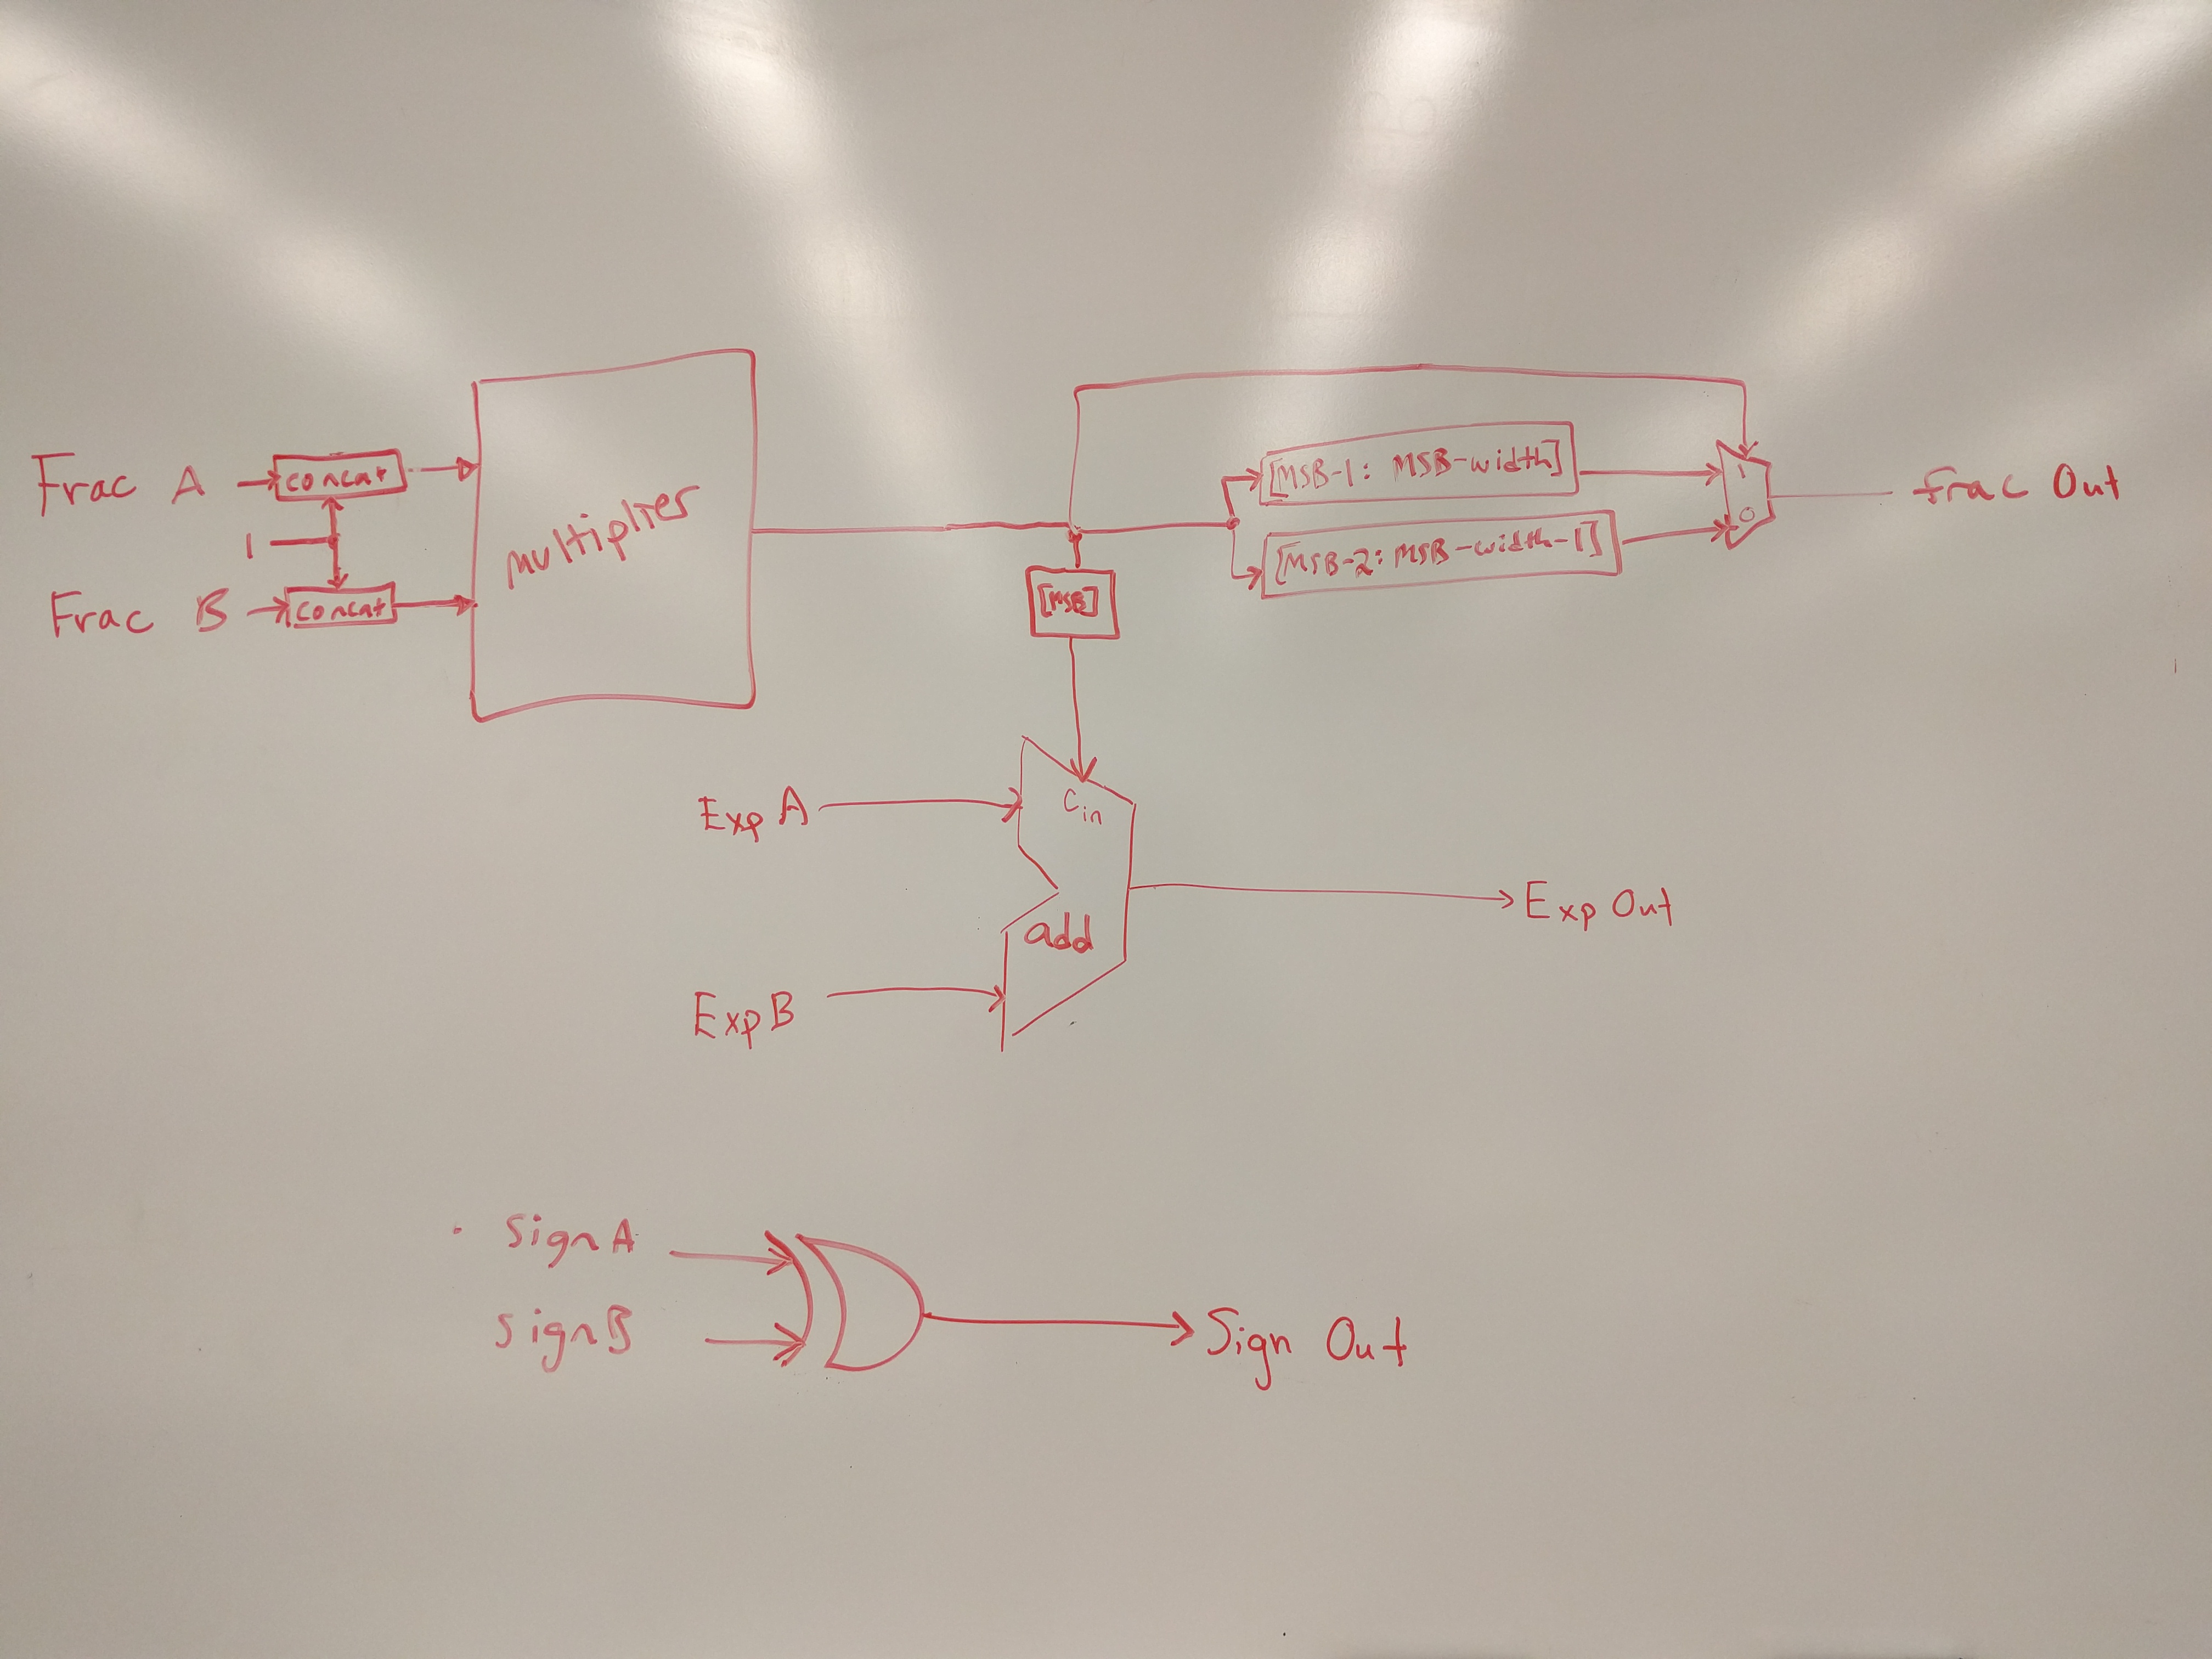 Frac A
concat
1
Frac B
concat
multiplier
[MSB]
[MSB-1: MSB-width]
[MSB-2: MSB-width-1]
1
0
frac Out
Exp A
Exp B
Cin
add
Exp Out
Sign A
Sign B
Sign Out